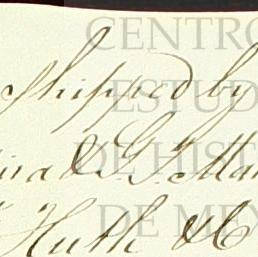 CENTRO
Shipped by
ESTUD
& G. Mar
DE HIST
Huth & C
DE ME